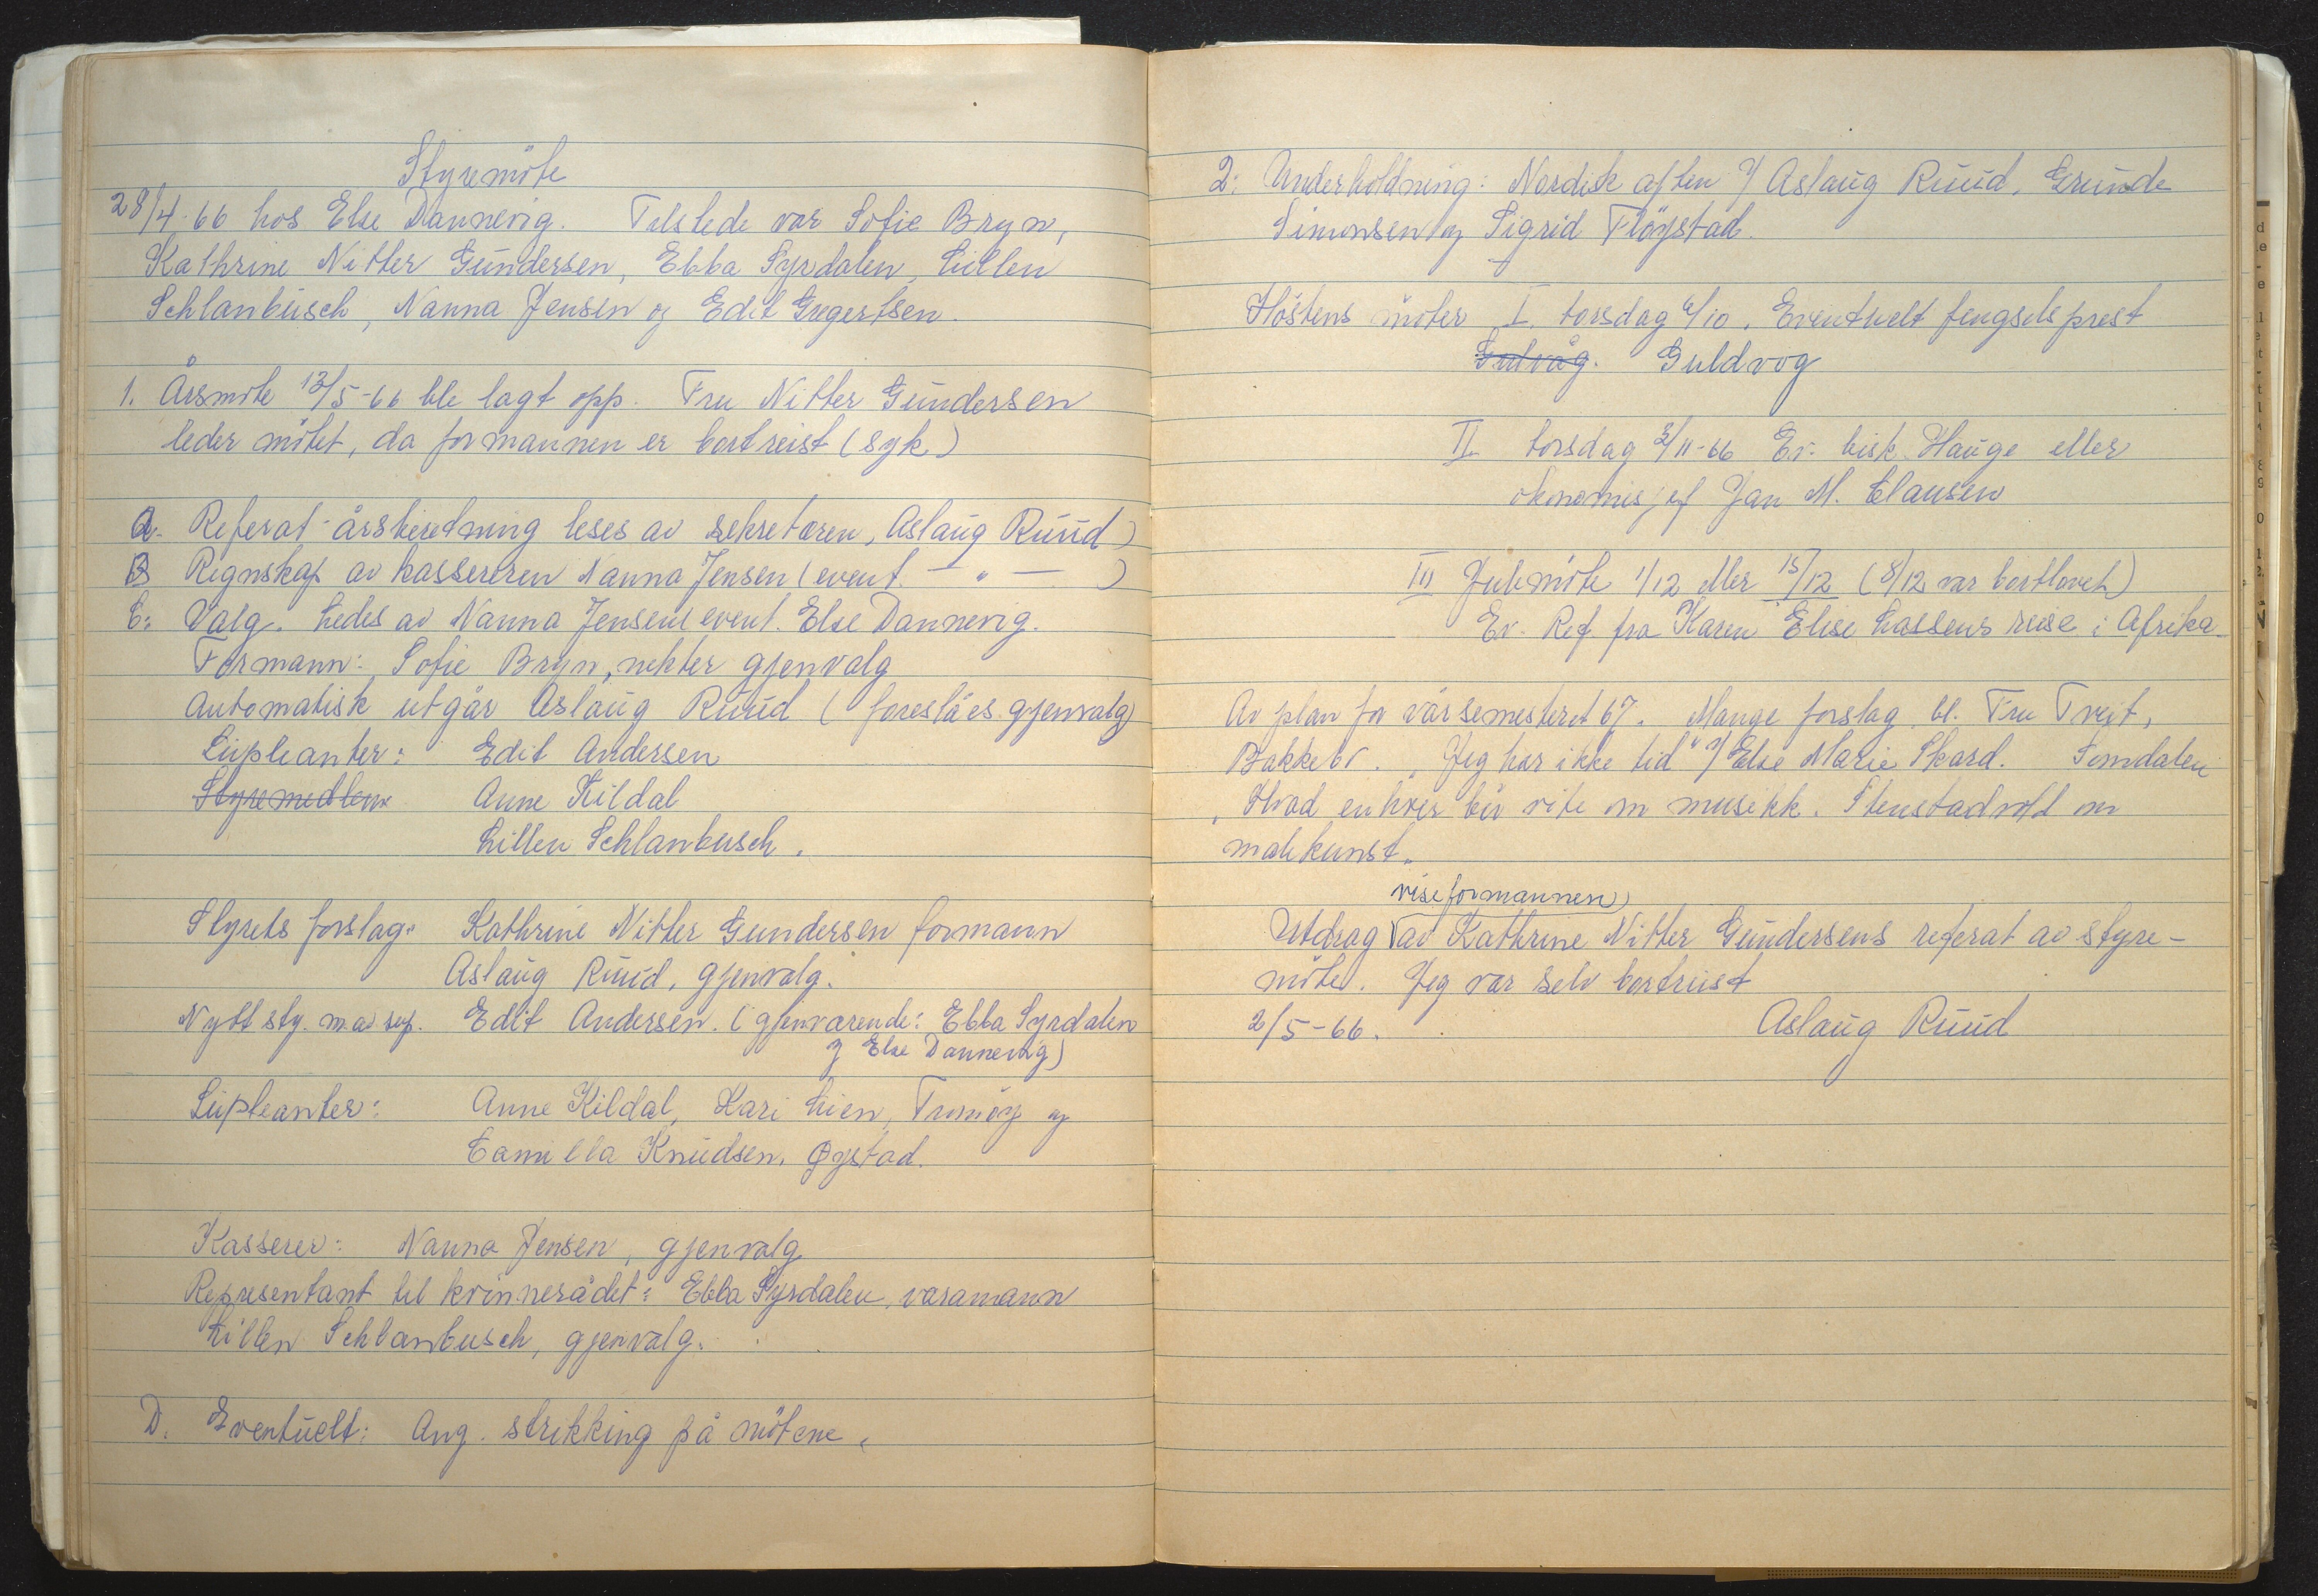 Styremöte
28/4-66 hos Else Dannevig. Tilstede var Sofie Bryn,
Kathrine Nitter Gundersen, Ebba Syrdalen, Lillen
Schlanbusch, Nanna Jensen og Edit Gregertsen.
1. Årsmöte 12/5-66 ble lagt opp. Fru Nitter Gundersen
leder mötet, da formannen er bortreist (syk)
a. Referat - årsberetning leses av sekretæren, Aslaug Ruud)
B Regnskap av kassereren Nanna Jensen (event. — " — )
C: Valg. Ledes av Nanna Jensen event. Else Dannevig.
Formann: Sofie Bryn, nekter gjenvalg
Automatisk utgår Aslaug Ruud ( foreslåes gjenvalg)
Supleanter: Edit Andersen
Styremedlem Anne Kildal
Lillen Schlanbusch.
Styrets forslag: Kathrine Nitter Gundersen formann
Aslaug Ruud, gjenvalg.
Nytt sty. m. av sup. Edit Andersen. (gjenværende: Ebba Syrdalen
og Else Dannevig)
Supleanter: Anne Kildal, Kari Lien, Tromöy og
Camilla Knudsen, Øystad.
Kasserer: Nanna Jensen, gjenvalg
Representant til kvinnerådet: Ebba Syrdalen, varamann
Lillen Schlanbusch, gjenvalg.
D. Eventuelt: Ang. strikking på mötene.
2: Underholdning: Nordisk aften v/ Aslaug Ruud, Grunde
Simonsen og Sigrid Flöystad.
Höstens möter I. torsdag 6/10. Eventuelt fengselsprest
Gulvåg. Guldvog
II torsdag 3/11-66 Ev. bisk. Hauge eller
ökonomisjef Jan M. Clausen
III Julemöte 1/12 eller 15/12 (8/12 var bortlovet)
Ev. Ref. fra Karen Elise Lassens reise i Afrika.
Av plan for vårsemesteret 67. Mange forslag bl. Fru Tveit,
Bakkebö. "Jeg har ikke tid" v/ Else Marie Skard. Tomdalen
"Hvad enhver bör vite om musikk. Stenstadvold om
malekunst.
viseformannen
Utdrag av Kathrine Nitter Gundersens referat av styre-
möte. Jeg var selv bortreist
2/5-66. Aslaug Ruud